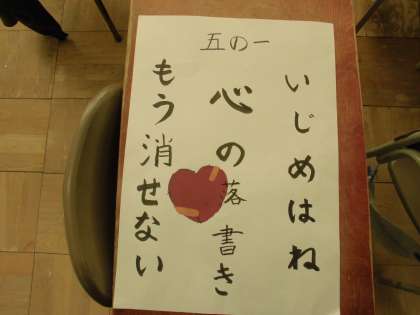 五の一
いじめはね
心の落書き
もう消せない